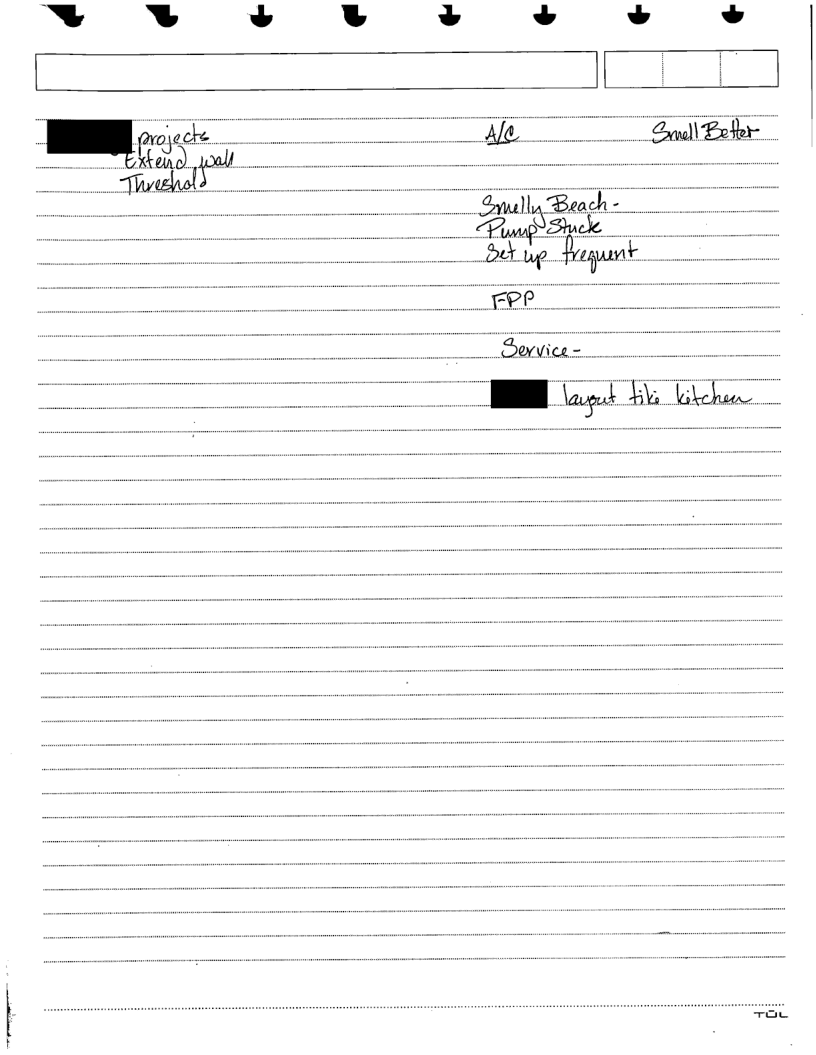 projects
Extend wall
Threshold
A/C
Smell Better
Smelly Beach -
Pump Stuck
Set up frequent
FPP
Service -
layout tiki kitchen
TUL